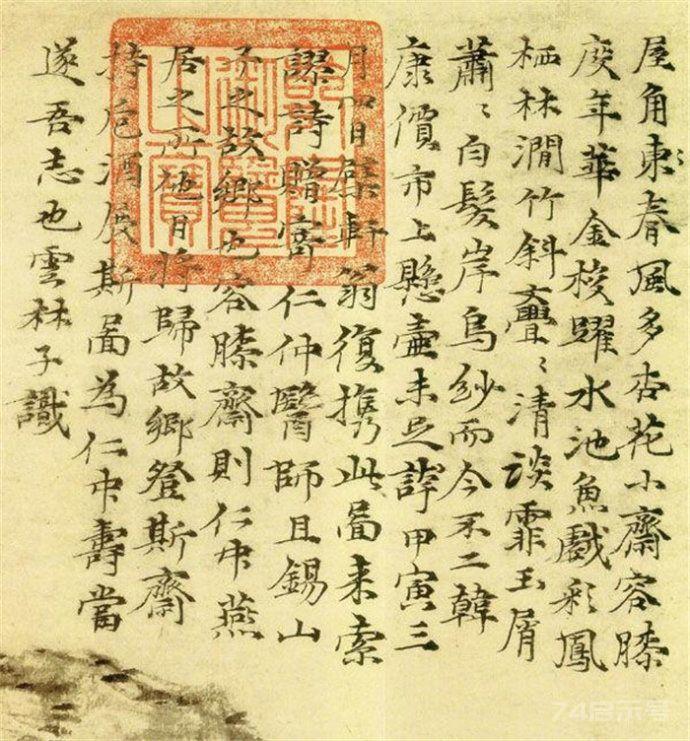 屋角東春風多杏花小齋容膝
度年華金梭躍水池魚戲彩鳳
栖林澗竹斜亹〻清談霏玉屑
蕭〻白髮岸烏紗而今不二韓
康價市上懸壺未足誇甲寅三
月四日檗軒翁復携此啚来索
謬詩贈寄仁仲醫師且錫山
予之故鄉也容膝齋則仁仲燕
居之所他日將歸故鄉登斯齋
持卮酒展斯啚為仁仲壽當
遂吾志也雲林子識
74启示号